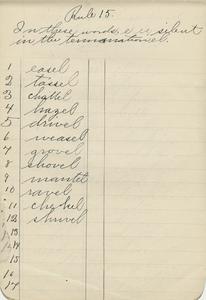 Rule 15.
In these words e is silent
in the termination el.
1 easel
2 tassel
3 chattel
4 hazel
5 drivel
6 weasel
7 grovel
8 shovel
9 mantel
10 ravel
11
12
13
14
15
16
17